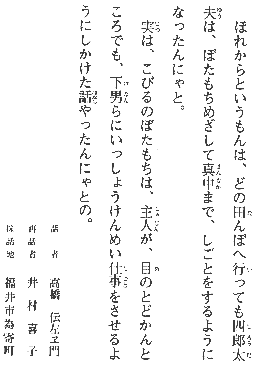 ほれからというもんは、どの田んぼへ行っても四郎太
夫は、ぼたもちめざして真中まで、しごとをするように
なったんにゃと。
実は、こびるのぼたもちは、主人が、目のとどかんと
ころでも、下男らにいっしょうけんめい仕事をさせるよ
うにしかけた話やったんにゃとの。
話者　高橋　伝左ヱ門
再話者　井村　喜子
採話地　福井市為寄町